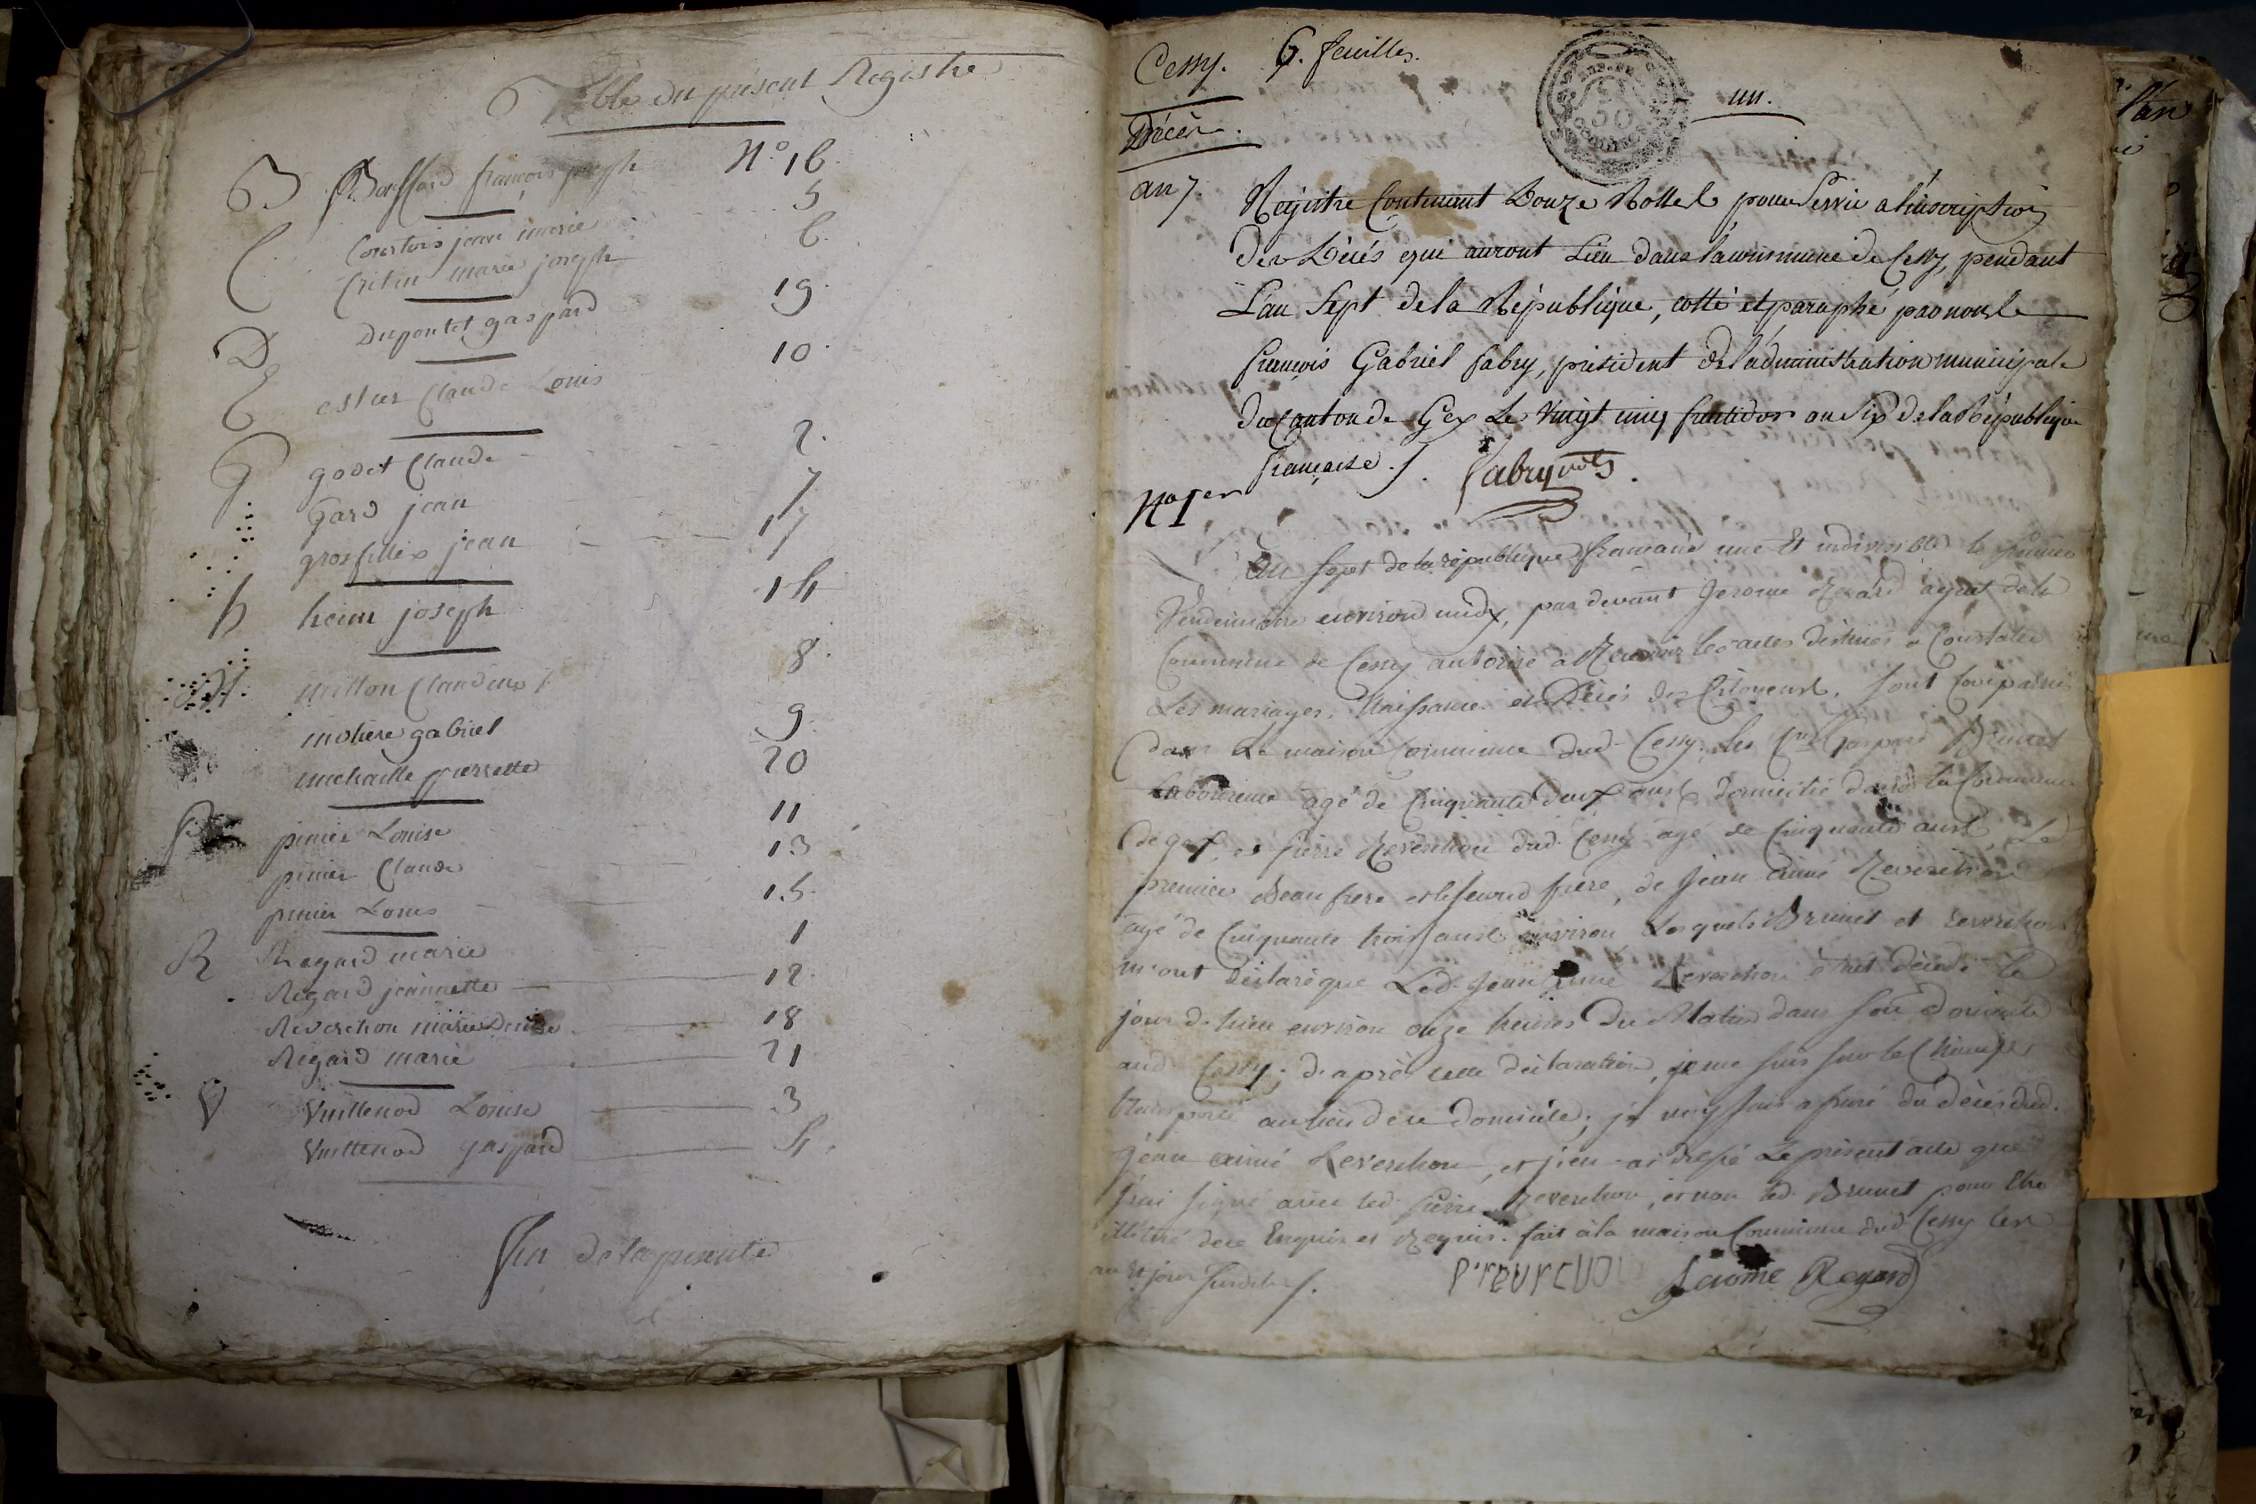 Table du présent Registre
B Bouffard françois joseph N.° 16.
5
C Courtois jeane marie
6.
Critin marie joseph
19.
D Dupontet gaspard
10.
E estier Claude Louis
G godet Claude 2.
Gard jean 7
grosfillex jean 17
h heim joseph 14
M mitton Claudine 8.
motiere gabriel 9.
michaille pierrette 20
P pinier Louise 11
pinier Claude 13
pinier Louis 15.
R Regard marie 1
Regard jeannette 12.
Reverchon marie Denise 18
Regard marie 21
V Vuillenod Louise 3
Vuillenod gaspard 4.
fin de la presente
Cessy. 6. feuilles.
un.
Décès.
an 7. Registre Contenant Douze Rolles pour Servir a l'inscription
des Décés qui auront Lieu dans la commune de Cessy, pendant
L'an Sept de la République, cotté et paraphé par nous
françois Gabriel fabry, président de l'administration municipale
du Canton de Gex Le Vingt cinq fructidor an Six de la République
française ./. fabry
N.° 1er
L'an Sept de la république française une Et indivisible le premier
Vendemiaire environ midy, par devant Jerome Regard agent de la
Commune de Cessy autorisé à Recevoir les actes destinés a Constater
Les mariages, Naissances et Décés des Citoyens. Sont Comparus
dans La maison Commune dud. Cessy, les Cns Gaspard Brunet
Laboureur agé de Cinquante deux ans domicilié dans la Commune
de gex, et pierre Reverchon dud. Cessy agé de Cinquante ans, Le
premier Beau frere et le second frere, de Jean aimé Reverchon
agé de Cinquante trois ans environ Lesquels Brunet et Reverchon
m'ont déclaré que Led. Jean aimé Reverchon étoit décédé le
jour d'hier environ onze heures du Matin dans son domicile
aud. Cessy; d'après cette déclaration, je me suis sur le Champ
transporté au lieu de ce domicile; je m'y suis assuré du décés dud.
Jean aimé Reverchon, et j'en ai dressé Le présent acte que
j'ai signé avec led. pierre Reverchon, et non led. Brunet pour Etre
illitéré de ce Enquis et Requis. fait à la maison Commune dud. Cessy les
an Et jour susdits ./.
Jérome Regard